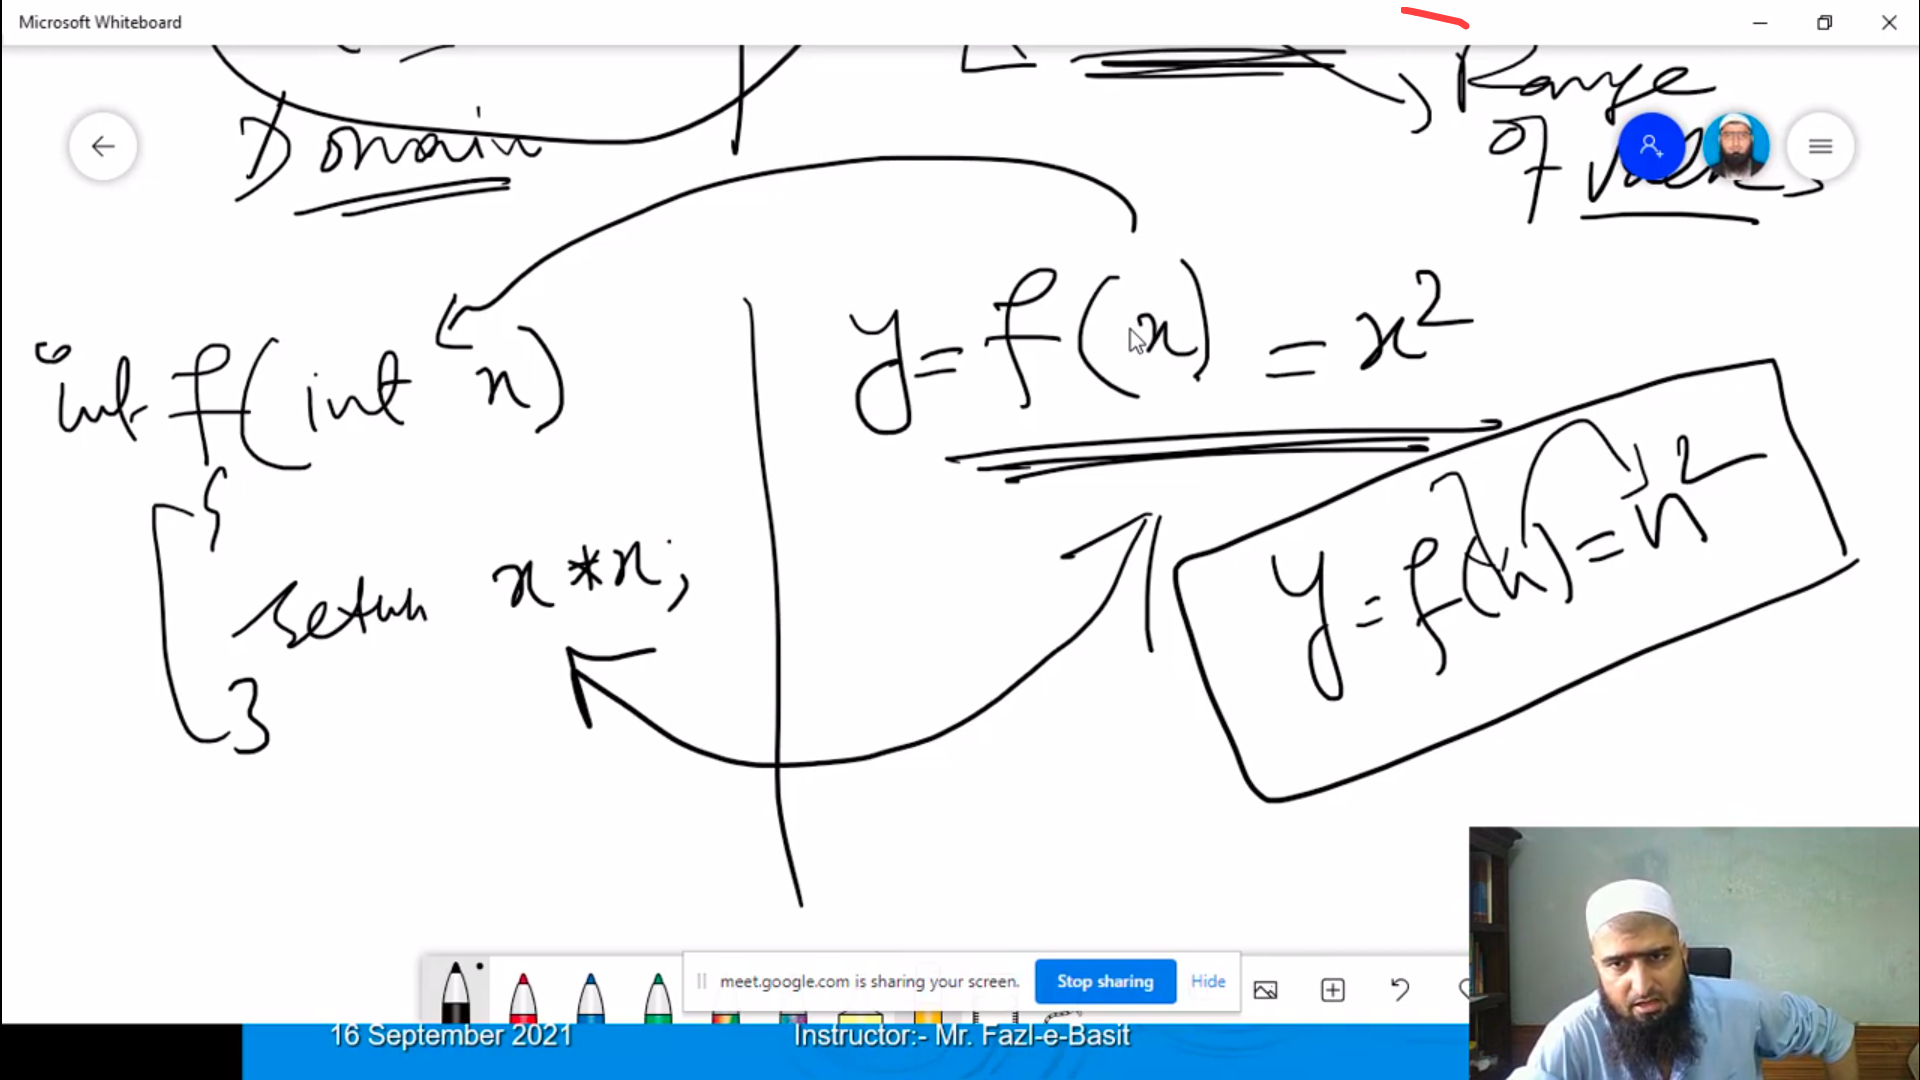 Microsoft Whiteboard
Domain
Range
of Values
int f(int x)
{
return x*x;
}
y=f(x) = x²
y=f(x)=x²
meet.google.com is sharing your screen.
Stop sharing
Hide
16 September 2021
Instructor:- Mr. Fazl-e-Basit